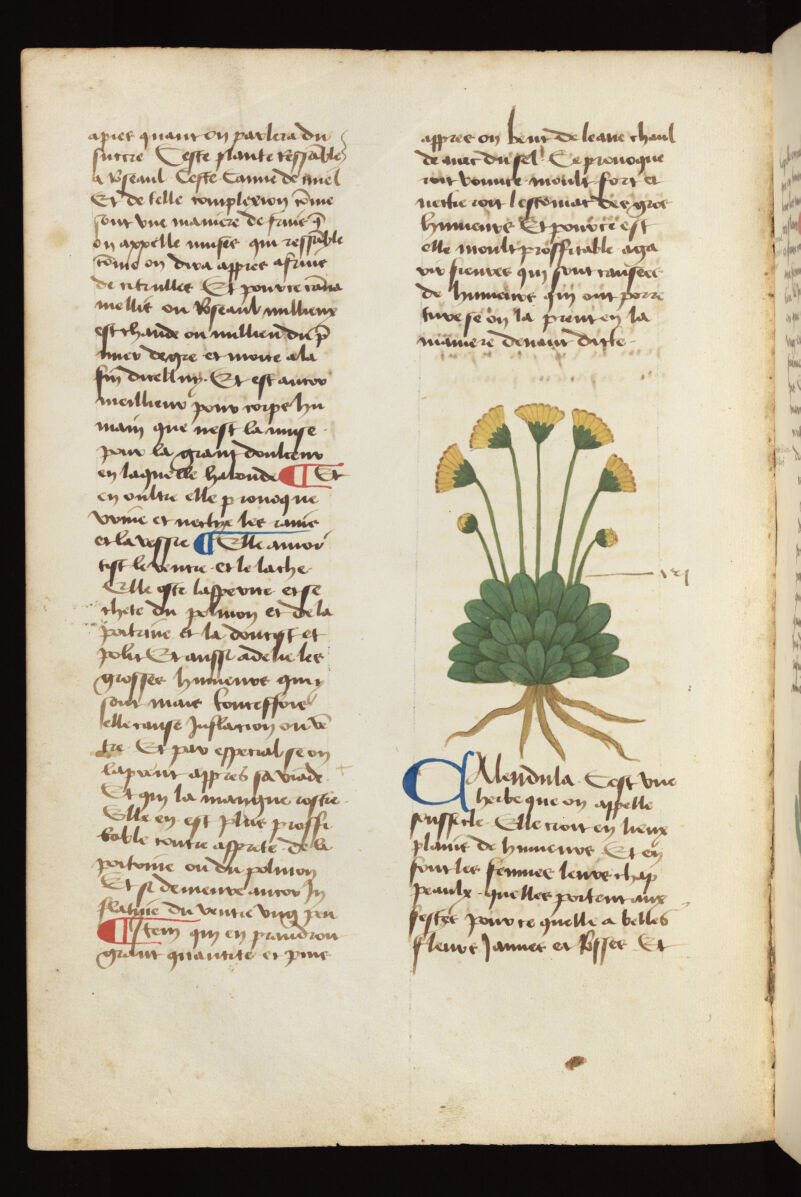 apres quant on parlera du
succre Ceste plante ressāble
a Roseaul Ceste Canne de miel
Et de telle complexion cōme
sont vne maniere de fruis q̄
on appelle muses qui ressāble
cōme on dira appres a fruis
de citrulles Et pource cāna
mellis ou Roseaul millieux
est chaude ou millieu du p̄
mier degre et moite a la
fin dicelluy. Et est ancor
meilleur pour corps hu
main que nest la muse
pour la grant doulceur
en laquelle habonde ¶ Et
en oultre elle prouoque
vrine et nectye les rains
et la vessie ¶ Elle amor
tist le ventre et le lache
Elle oste lasperite et se
chete du polmon et de la
poitrine et la doucist et
polit Et aussi adelie les
grosses humeurs qui y
sont mais touteffois
elle cause Inflacion ou vē
tre Et par especial se on
la prent appres sa viade
Et qui la mangue rostie
Elle en est plus proffi
table contre asprete de la
poitrine ou du polmon
Et si demeure ancor In
flature du ventre vng peu
¶ Item qui en prandroit
grant quantite et puis
appres on beut de leaue chaul
de auec du sel Ce prouoque
roit vomite moult fort et
nectie roit lestomac des gros
humeurs Et pource est
elle moult proffitable a ga
rir fieures qui sont causees
de humeurs qui ont porre
ture se on la prent en la
maniere deuant dicte
Calendula Cest vne
herbe que on appelle
soussicle Elle croit en lieux
plains de humeurs Et en
font les femmes leurs chap
peaulx quelles portent aux
festes pource quelle a belles
fleurs Jaunes et Rosses Et